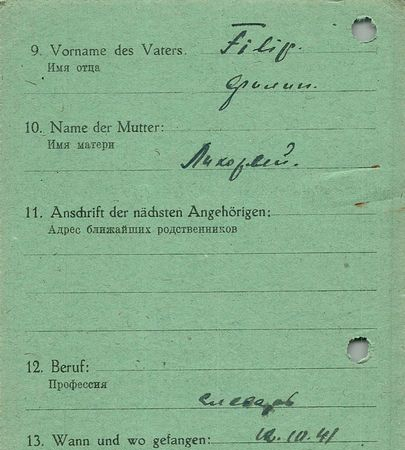 9. Vorname des Vaters. Filip.
Имя отца
Филип.
10. Name der Mutter:
Имя матери
11. Anschrift der nächsten Angehörigen:
Адрес ближайших родственников
12. Beruf:
Профессия
13. Wann und wo gefangen: